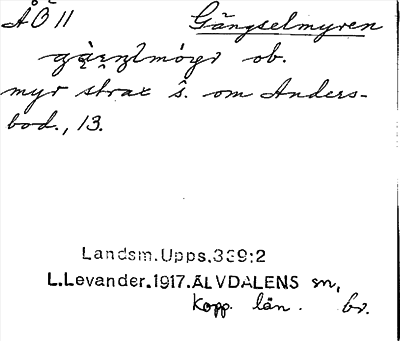 ÅÖ 11 Gängselmyren
ob.
myr strax ŝ. om Anders-
bod., 13.
Landsm. Upps. 339:2
L. Levander. 1917. ÄLVDALENS sn,
Kopp. län. br.